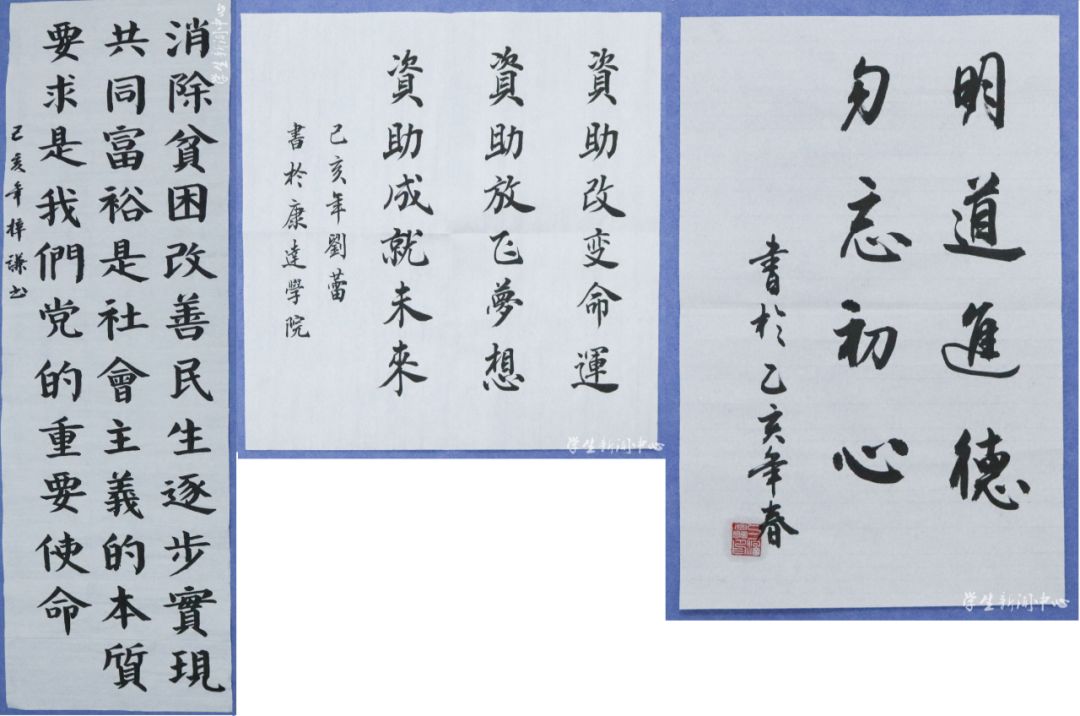 消除貧困改善民生逐步實現
共同富裕是社會主義的本质
要求是我們党的重要使命
己亥年梓謙书
資助改变命運
資助放飞夢想
資助成就未來
己亥年劉蕾
書於康達學院
学生新闻中心
明道進德
勿忘初心
書於乙亥年春
学生新闻中心
学生新闻中心